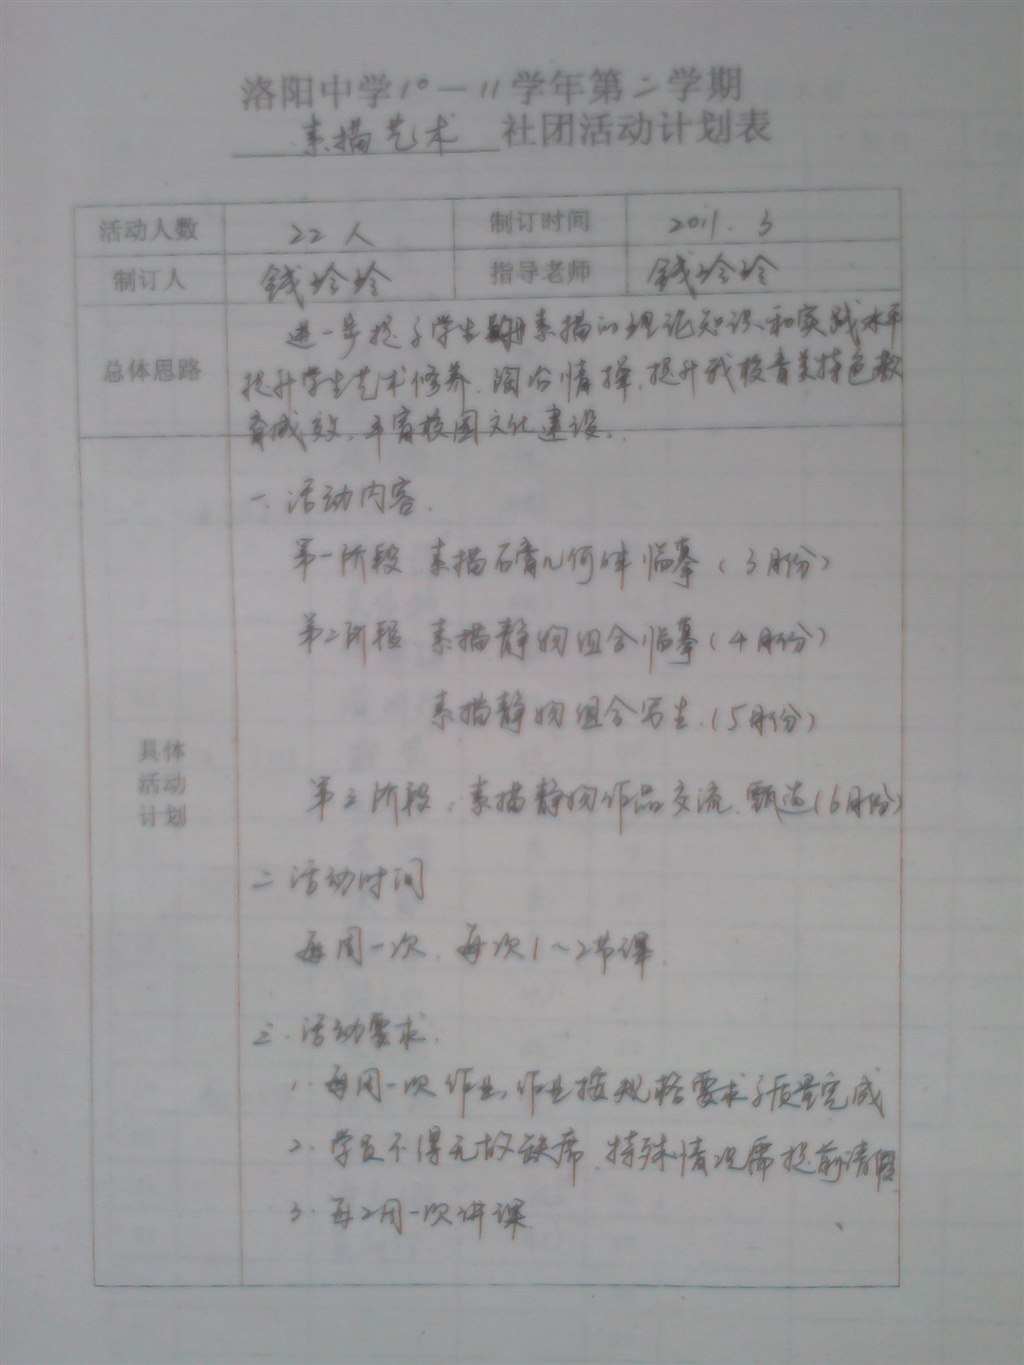 洛阳中学10—11学年第二学期
素描艺术 社团活动计划表
活动人数 22人 制订时间 2011.3
制订人 钱玲玲 指导老师 钱玲玲
总体思路
进一步提高学生素描的理论知识和实践水平
提升学生艺术修养、陶冶情操,提升我校音美特色教
育成效,丰富校园文化建设。
具体
活动
计划
一、活动内容.
第一阶段 素描石膏几何体临摹(3月份)
第二阶段 素描静物组合临摹(4月份)
素描静物组合写生.(5月份)
第三阶段:素描静物作品交流、甄选(6月份)
二 活动时间
每周一次,每次1~2节课.
三.活动要求.
1.每周一次作业,作业按规格要求质量完成
2.学员不得无故缺席、特殊情况需提前请假
3.每2周一次讲课.